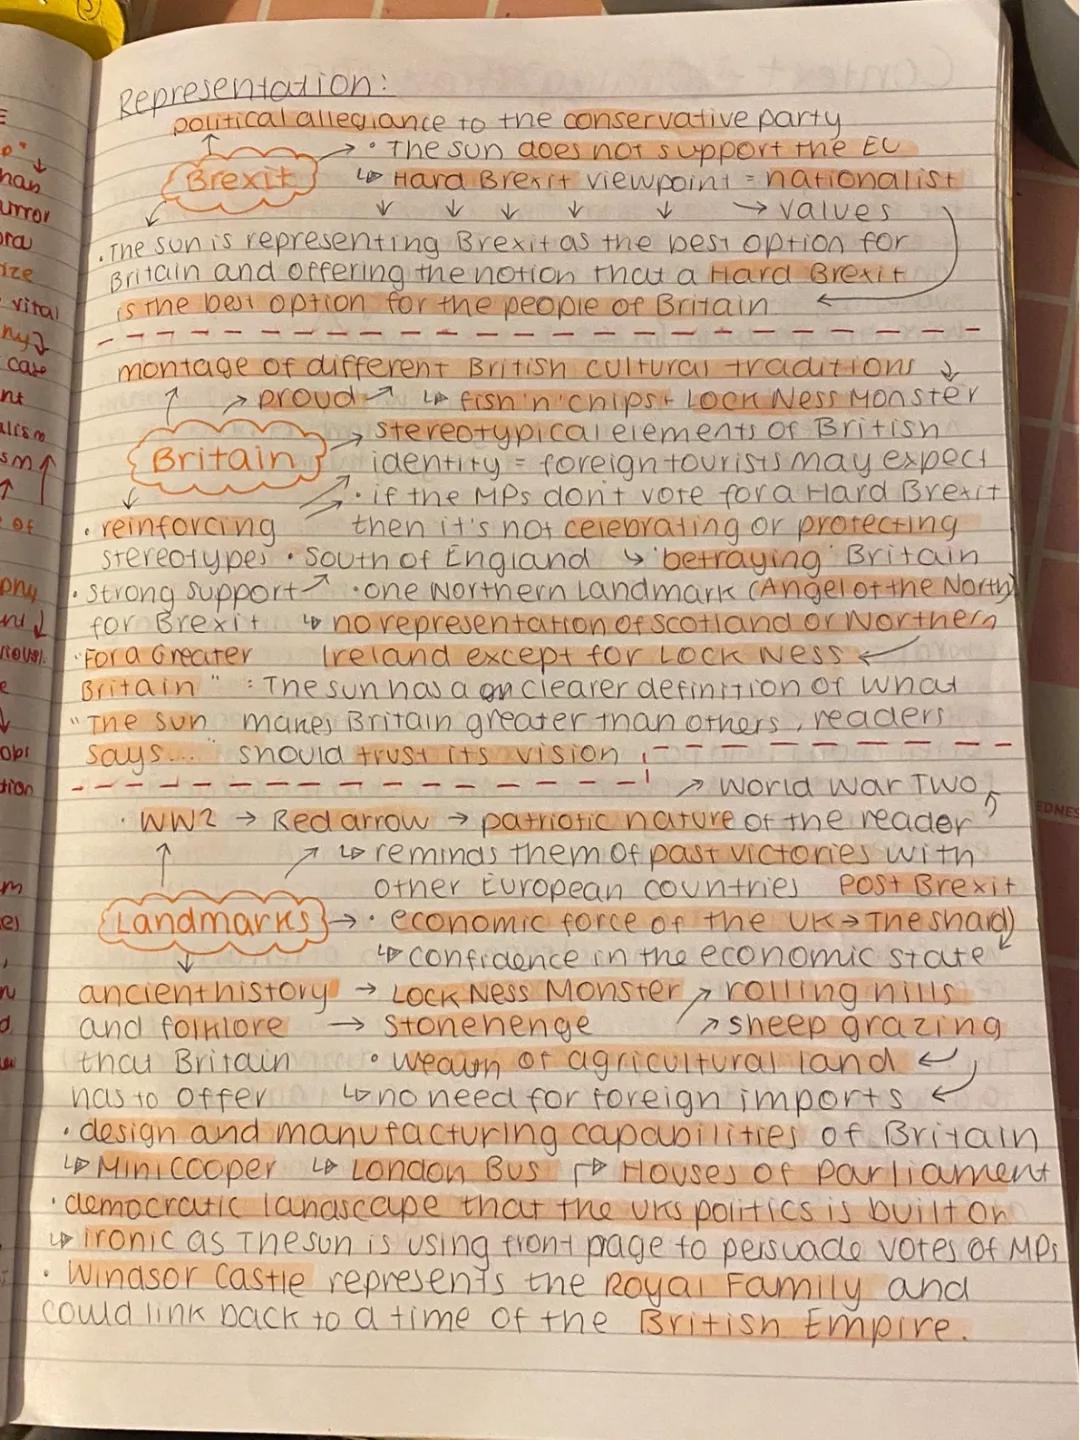 Representation:
political allegiance to the conservative party
Brexit → • The sun does not support the EU
↳ Hard Brexit viewpoint = nationalist
→ values
• The sun is representing Brexit as the best option for
Britain and offering the notion that a Hard Brexit
is the best option for the people of Britain
montage of different British cultural traditions
→ proud ↳ fish 'n' chips + Lock Ness Monster
Britain → stereotypical elements of British
identity = foreign tourists may expect
• if the MPs don't vote for a Hard Brexit
• reinforcing then it's not celebrating or protecting
stereotypes • South of England ↳ 'betraying' Britain
• Strong support • one Northern Landmark (Angel of the North)
for Brexit ↳ no representation of Scotland or Northern
"For a Greater Ireland except for Lock Ness
Britain" : The sun has a clearer definition of what
"The Sun makes Britain greater than others, readers
says...." should trust its vision
→ World War Two
• WW2 → Red arrow → patriotic nature of the reader
↳ reminds them of past victories with
other European countries Post Brexit
Landmarks → • economic force of the UK → The shard
↳ confidence in the economic state
ancient history → Lock Ness Monster → rolling hills
and folklore → Stonehenge → sheep grazing
that Britain • wealth of agricultural land
has to offer ↳ no need for foreign imports
• design and manufacturing capabilities of Britain
↳ Mini Cooper ↳ London Bus ↳ Houses of Parliament
• democratic landscape that the UKs politics is built on
↳ ironic as The sun is using front page to persuade votes of MPs
• Windsor Castle represents the Royal Family and
could link back to a time of the British Empire.